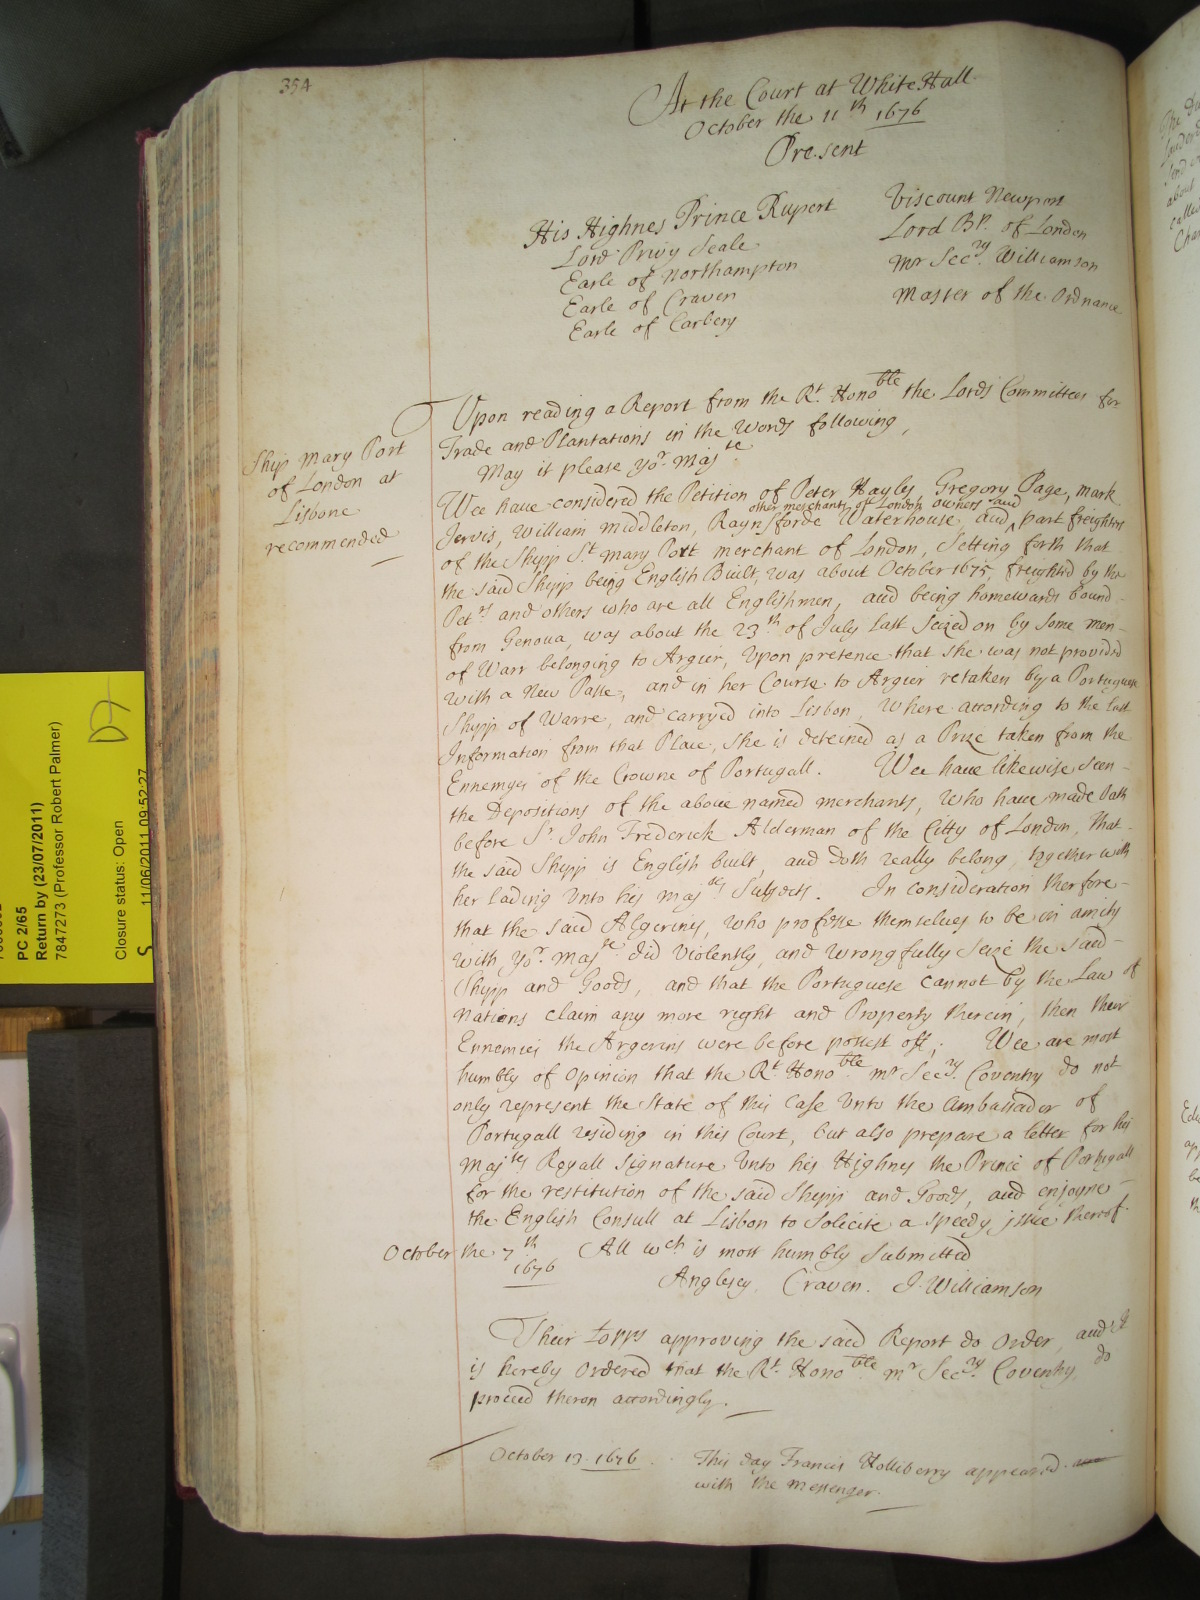 354
At the Court at WhiteHall
October the 11th 1676
Present
His Highnes Prince Rupert
Lord Privy Seale
Earle of Northampton
Earle of Craven
Earle of Carbery
Viscount Newport
Lord BP. of London
Mr Secry. Williamson
Master of the Ordnance
Ship Mary Port
of London at
Lisbone
recommended
Upon reading a Report from the Rt. Honoble the Lords Committees for
Trade and Plantations in the Words following,
May it please yor. Majte
Wee have considered the Petition of Peter Hayles, Gregory Page, Mark
other merchants of London owners and
Jervis, William Middleton, Raynsforde Waterhouse, and part freighters
of the Shipp St. Mary Port merchant of London, Setting forth that
the said Shipp being English Built, was about October 1675, freighted by the
Petrs. and others who are all Englishmen, and being homewards bound
from Genoua, was about the 23th of July last Seized on by some men
of Warr belonging to Argier, Upon pretence that she was not provided
with a New Passe, and in her Course to Argier retaken by a Portuguese
Shipp of Warre, and carryed into Lisbon, Where according to the last
Information from that Place, she is deteined as a Prize taken from the
Ennemyes of the Crowne of Portugall. Wee have likewise seen
the Depositions of the above named merchants, Who have made Oath
before Sr. John Frederick Alderman of the Citty of London, that
the said Shipp is English built, and doth really belong, together with
her lading Unto his Majtes Subjects. In consideration therfore
that the said Algerines, who professe themselves to be in amity
with yor. Majtie did Violently, and wrongfully Seize the said
Shipp and Goods, and that the Portuguese cannot by the Law of
Nations claim any more right and Property therein, then their
Ennemies the Argerins were before possest off; Wee are most
humbly of Opinion that the Rt. Honoble. Mr Secry. Coventry do not
only represent the State of this Case Unto the Ambassador of
Portugall residing in this Court, but also prepare a letter for his
Majtes Royall Signature Unto his Highnes the Prince of Portugall
for the restitution of the said Shipp and Goods, and enjoyne
the English Consull at Lisbon to Solicite a Speedy issue therof.
October the 7th 1676
All wch is most humbly Submitted
Anglesey. Craven. J. Williamson
Their Lopps approving the said Report do Order, and it
is hereby Ordered that the Rt. Honoble. Mr Secry. Coventry do
proceed theron accordingly.
October 13. 1676. This day Francis Holliberry appeared
with the Messenger.
PC 2/65
Return by (23/07/2011)
7847273 (Professor Robert Palmer)
Closure status: Open
11/06/2011 09:52:27
S